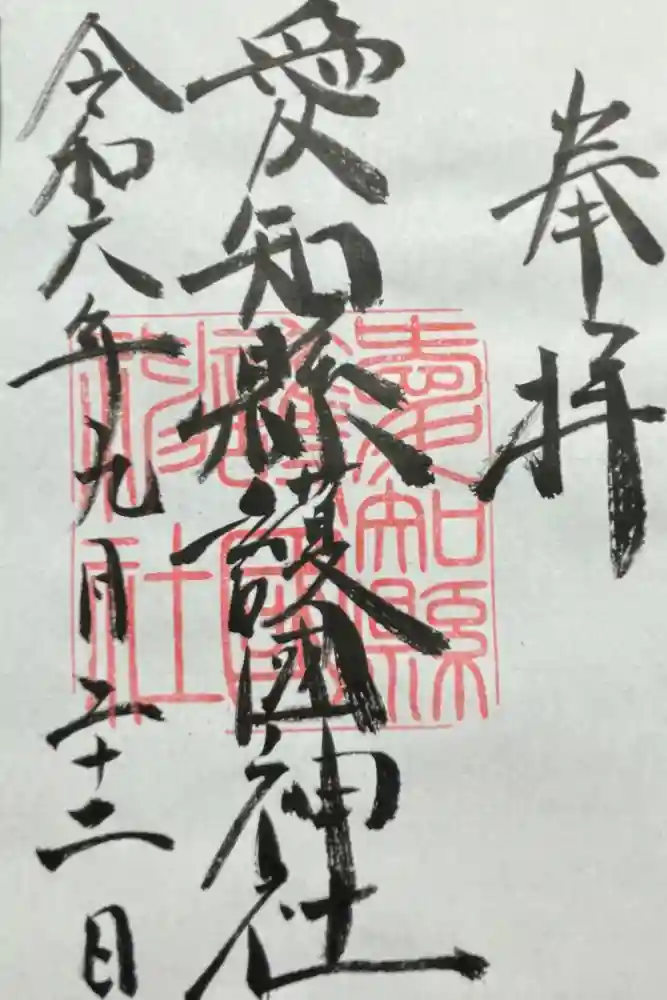 奉拝
愛知縣護国神社
愛知縣護國神社
令和六年九月二十二日